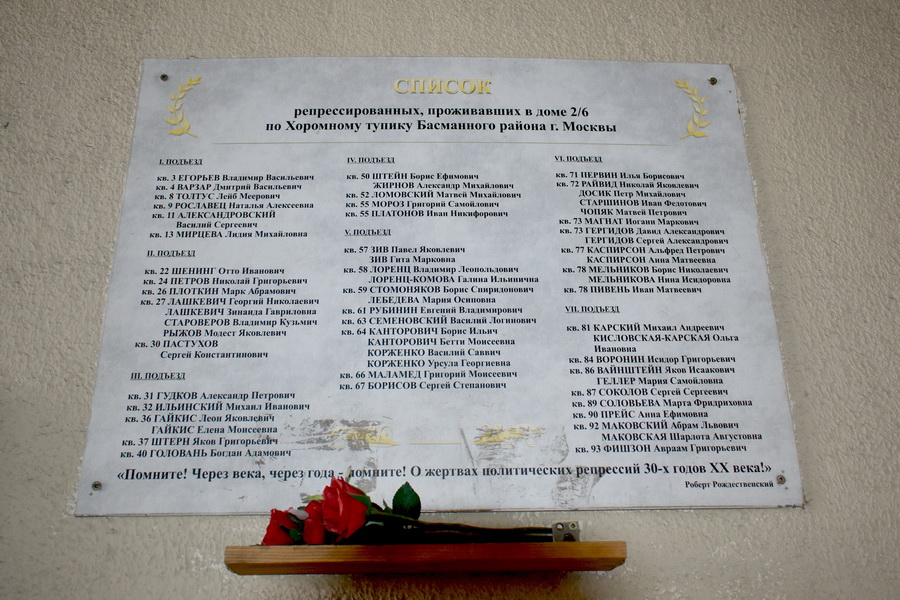 СПИСОК
репрессированных, проживавших в доме 2/6
по Хоромному тупику Басманного района г. Москвы
I. ПОДЪЕЗД
кв. 3 ЕГОРЬЕВ Владимир Васильевич
кв. 4 ВАРЗАР Дмитрий Васильевич
кв. 8 ТОЛТУС Лейб Меерович
кв. 9 РОСЛАВЕЦ Наталья Алексеевна
кв. 11 АЛЕКСАНДРОВСКИЙ
Василий Сергеевич
кв. 13 МИРЦЕВА Лидия Михайловна
II. ПОДЪЕЗД
кв. 22 ШЕНИНГ Отто Иванович
кв. 24 ПЕТРОВ Николай Григорьевич
кв. 26 ПЛОТКИН Марк Абрамович
кв. 27 ЛАШКЕВИЧ Георгий Николаевич
ЛАШКЕВИЧ Зинаида Гавриловна
СТАРОВЕРОВ Владимир Кузьмич
РЫЖОВ Модест Яковлевич
кв. 30 ПАСТУХОВ
Сергей Константинович
III. ПОДЪЕЗД
кв. 31 ГУДКОВ Александр Петрович
кв. 32 ИЛЬИНСКИЙ Михаил Иванович
кв. 36 ГАЙКИС Леон Яковлевич
ГАЙКИС Елена Моисеевна
кв. 37 ШТЕРН Яков Григорьевич
кв. 40 ГОЛОВАНЬ Богдан Адамович
IV. ПОДЪЕЗД
кв. 50 ШТЕЙН Борис Ефимович
ЖИРНОВ Александр Михайлович
кв. 52 ЛОМОВСКИЙ Матвей Михайлович
кв. 55 МОРОЗ Григорий Самойлович
кв. 55 ПЛАТОНОВ Иван Никифорович
V. ПОДЪЕЗД
кв. 57 ЗИВ Павел Яковлевич
ЗИВ Гита Марковна
кв. 58 ЛОРЕНЦ Владимир Леопольдович
ЛОРЕНЦ-КОМОВА Галина Ильинична
кв. 59 СТОМОНЯКОВ Борис Спиридонович
ЛЕБЕДЕВА Мария Осиповна
кв. 61 РУБИНИН Евгений Владимирович
кв. 63 СЕМЕНОВСКИЙ Василий Логинович
кв. 64 КАНТОРОВИЧ Борис Ильич
КАНТОРОВИЧ Бетти Моисеевна
КОРЖЕНКО Василий Саввич
КОРЖЕНКО Урсула Георгиевна
кв. 66 МАЛАМЕД Григорий Моисеевич
кв. 67 БОРИСОВ Сергей Степанович
VI. ПОДЪЕЗД
кв. 71 ПЕРВИН Илья Борисович
кв. 72 РАЙВИД Николай Яковлевич
ДОСИК Петр Михайлович
СТАРШИНОВ Иван Федотович
ЧОПЯК Матвей Петрович
кв. 73 МАГНАТ Иоганн Маркович
кв. 73 ГЕРГИДОВ Давид Александрович
ГЕРГИДОВ Сергей Александрович
кв. 77 КАСПИРСОН Альфред Петрович
КАСПИРСОН Анна Матвеевна
кв. 78 МЕЛЬНИКОВ Борис Николаевич
МЕЛЬНИКОВА Нина Исидоровна
кв. 78 ПИВЕНЬ Иван Матвеевич
VII. ПОДЪЕЗД
кв. 81 КАРСКИЙ Михаил Андреевич
КИСЛОВСКАЯ-КАРСКАЯ Ольга
Ивановна
кв. 84 ВОРОНИН Исидор Григорьевич
кв. 86 ВАЙНШТЕЙН Яков Исаакович
ГЕЛЛЕР Мария Самойловна
кв. 87 СОКОЛОВ Сергей Сергеевич
кв. 89 СОЛОВЬЕВА Марта Фридриховна
кв. 90 ПРЕЙС Анна Ефимовна
кв. 92 МАКОВСКИЙ Абрам Львович
МАКОВСКАЯ Шарлота Августовна
кв. 93 ФИШЗОН Авраам Григорьевич
«Помните! Через века, через года - помните! О жертвах политических репрессий 30-х годов XX века!»
Роберт Рождественский